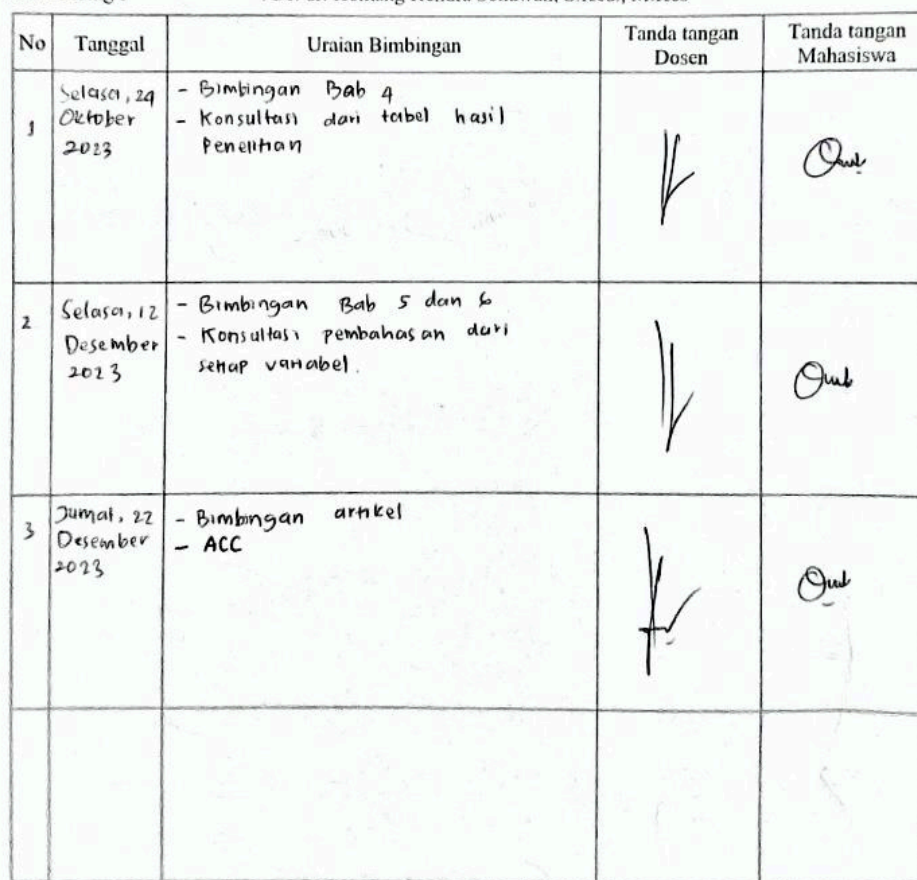 No Tanggal Uraian Bimbingan Tanda tangan Dosen Tanda tangan Mahasiswa
1 Selasa, 24 Oktober 2023
- Bimbingan Bab 4
- Konsultasi dari tabel hasil
Penelitian
2 Selasa, 12 Desember 2023
- Bimbingan Bab 5 dan 6
- Konsultasi pembahasan dari
setiap variabel.
3 Jumat, 22 Desember 2023
- Bimbingan artikel
- ACC